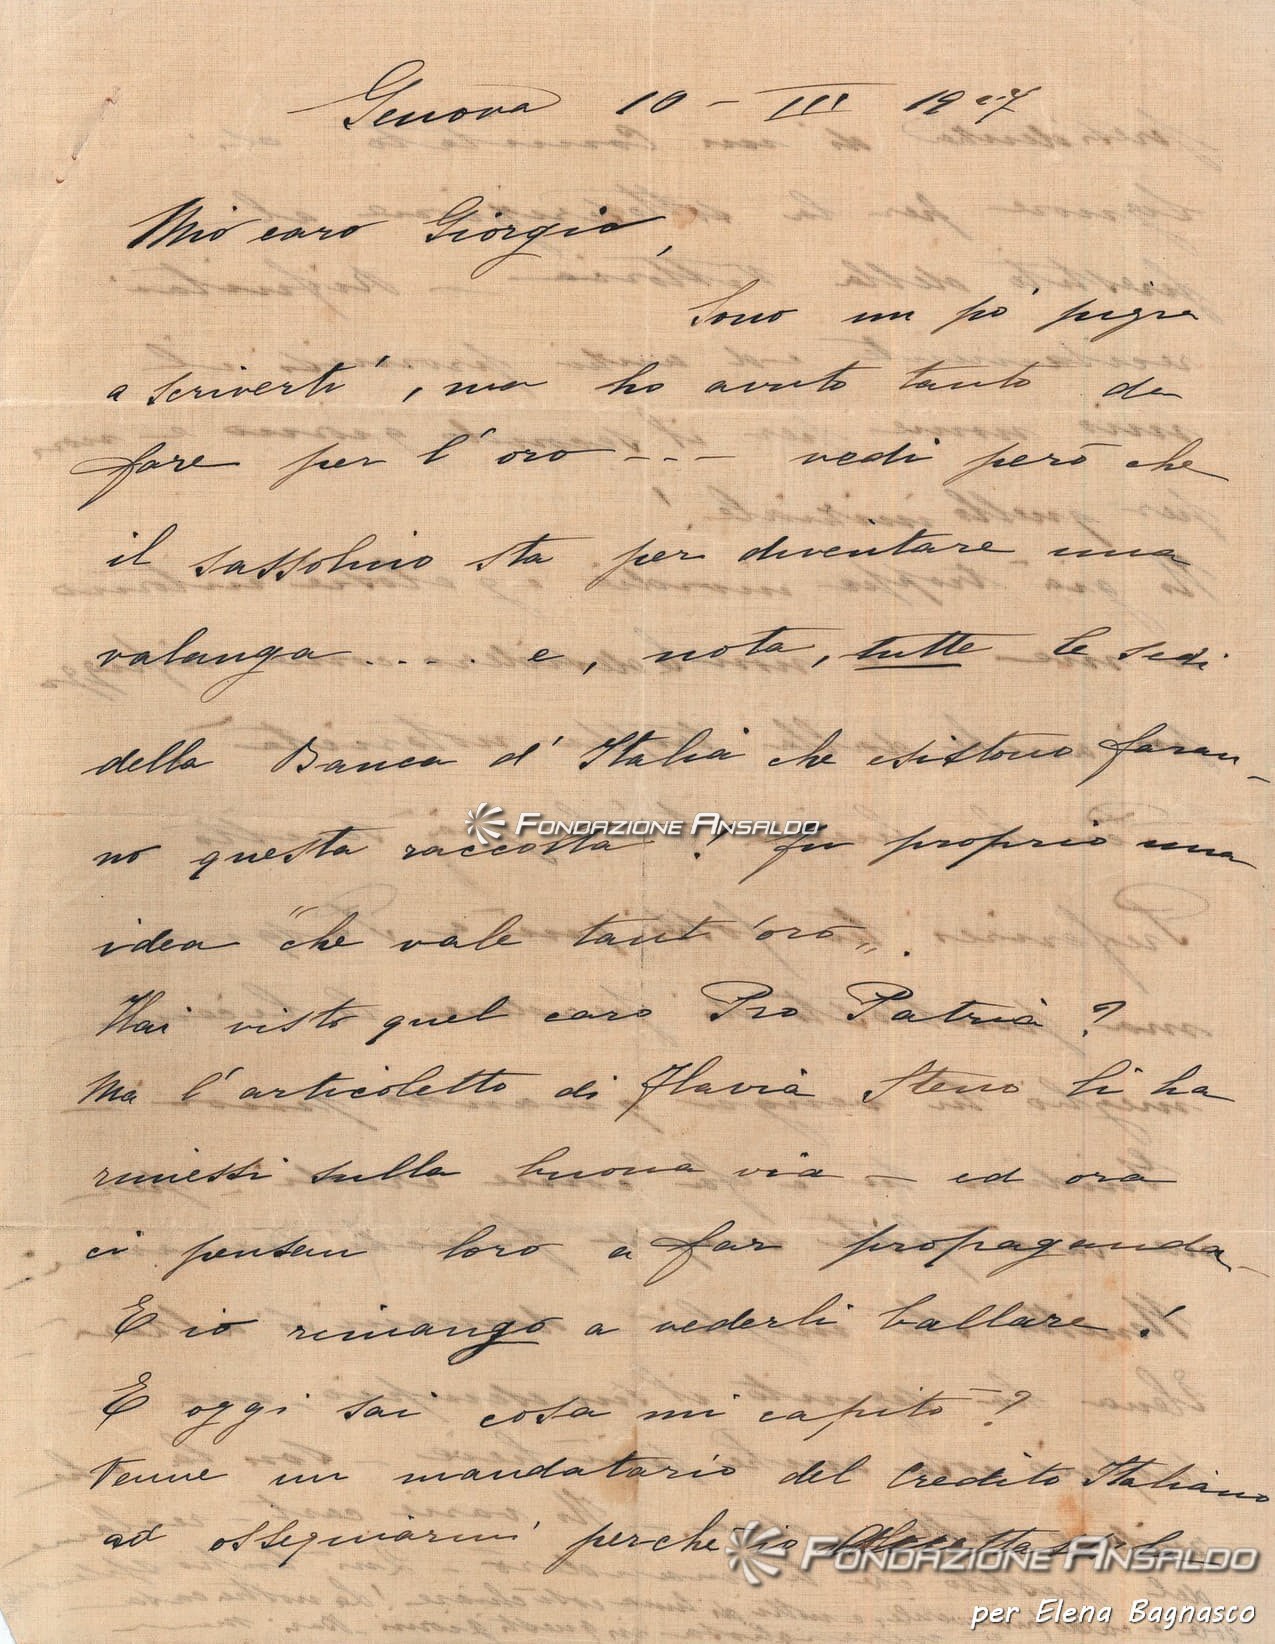 Genova 10 - III 1917
Mio caro Giorgio,
Sono un pò pigra
a scriverti, ma ho avuto tanto da
fare per l'oro - - - vedi però che
il sassolino sta per diventare una
valanga .... e, nota, tutte le sedi
della Banca d'Italia che esistono faran-
no questa raccolta! Fu proprio una
idea "che vale tant'oro".
Hai visto quel caro Pro Patria?
Ma l'articoletto di Flavia Steno li ha
rimessi sulla buona via - ed ora
ci pensan loro a far propaganda -
E io rimango a vederli ballare!
E oggi sai cosa mi capitò?
Venne un mandatario del Credito Italiano
ad ossequiarmi perché io
Fondazione Ansaldo
Fondazione Ansaldo
per Elena Bagnasco